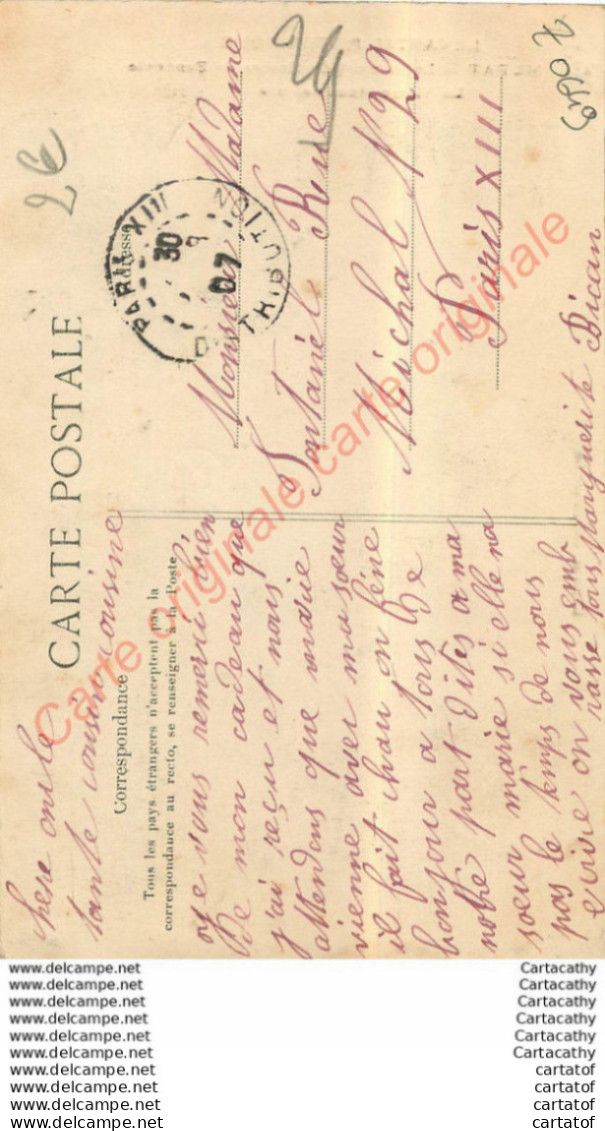 CARTE POSTALE
Correspondance
Tous les pays étrangers n'acceptent pas la
correspondance au recto, se renseigner à la Poste
Adresse
chere oncle
tante cousin cousine
je vous remerci bien
De mon cadeau que
j'ai reçu et nous
attendons que
vienne aver ma soeur
il fait chau on
bonjour a tous De
notre part Dites a ma
soeur marie si elle na
pas le temps de nous
ecrire on vous emb
rasse tous Marguerite Bican
Monsieur Madame
Fontaniel Rue
Michal N° 29
Paris XIII
PARIS XIII
30
9
07
DISTRIBUTION
2€
Carte originale carte originale
www.delcampe.net Cartacathy
www.delcampe.net Cartacathy
www.delcampe.net Cartacathy
www.delcampe.net Cartacathy
www.delcampe.net Cartacathy
www.delcampe.net Cartacathy
www.delcampe.net cartatof
www.delcampe.net cartatof
www.delcampe.net cartatof
www.delcampe.net cartatof